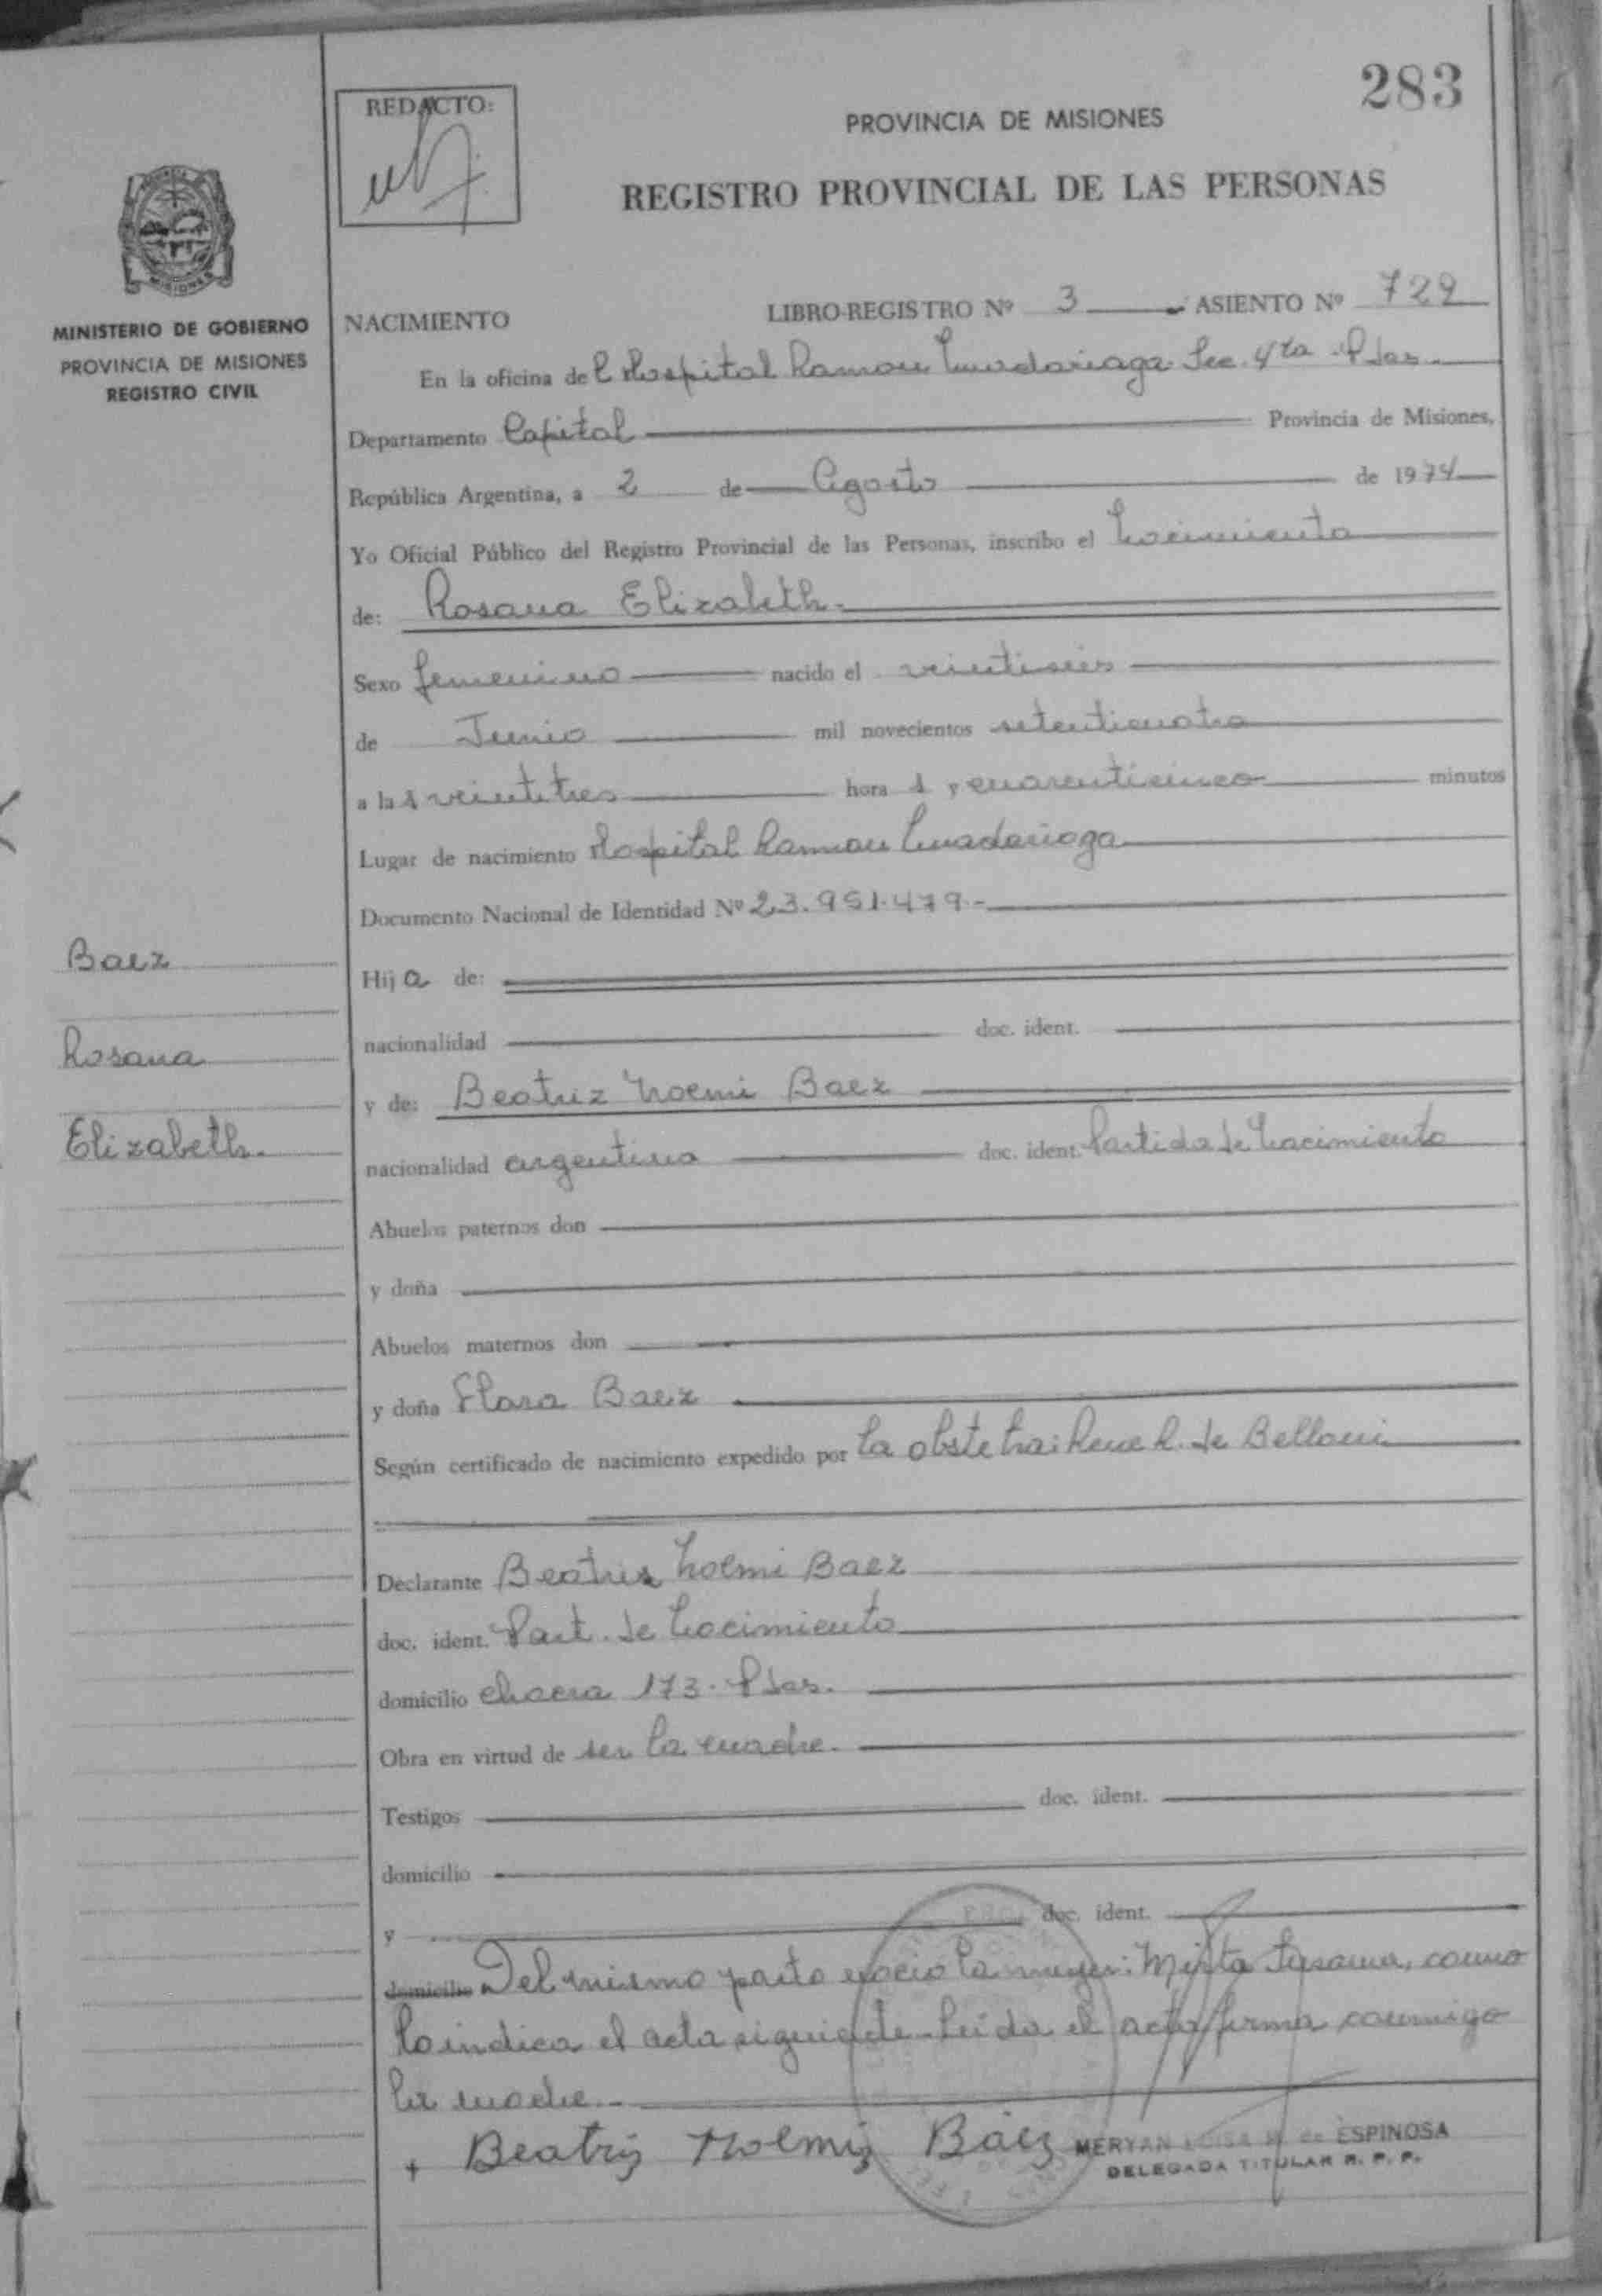 283
REDACTO:
PROVINCIA DE MISIONES
REGISTRO PROVINCIAL DE LAS PERSONAS
MISIONES
MINISTERIO DE GOBIERNO
PROVINCIA DE MISIONES
REGISTRO CIVIL
NACIMIENTO LIBRO-REGISTRO Nº 3 ASIENTO Nº 729
En la oficina del Hospital Ramon Madariaga Sec. 4ta Pdas.
Departamento Capital Provincia de Misiones,
República Argentina, a 2 de Agosto de 1974
Yo Oficial Público del Registro Provincial de las Personas, inscribo el Nacimiento
de: Rosana Elizabeth.
Sexo femenino nacido el veintiseis
de Junio mil novecientos setenticuatro
a las veintitres hora s y cuarenticinco minutos
Lugar de nacimiento Hospital Ramon Madariaga
Documento Nacional de Identidad Nº 23.951.479.-
Baez
Hija de:
nacionalidad doc. ident.
Rosana
y de: Beatriz Noemi Baez
Elizabeth.
nacionalidad argentina doc. ident. Partida de Nacimiento
Abuelos paternos don
y doña
Abuelos maternos don
y doña Flora Baez
Según certificado de nacimiento expedido por la obstetra: Rene R. de Belloni
Declarante Beatriz Noemi Baez
doc. ident. Part. de Nacimiento
domicilio chacra 173. Pdas.
Obra en virtud de ser la madre.
Testigos doc. ident.
domicilio
y doc. ident.
domicilio Del mismo parto nació la mujer: Mirta Susana, como
lo indica el acta siguiente- Leida el acta firma conmigo
la madre.-
+ Beatriz Noemi Báez MERYAN LUISA de ESPINOSA
DELEGADA TITULAR R. P. P.